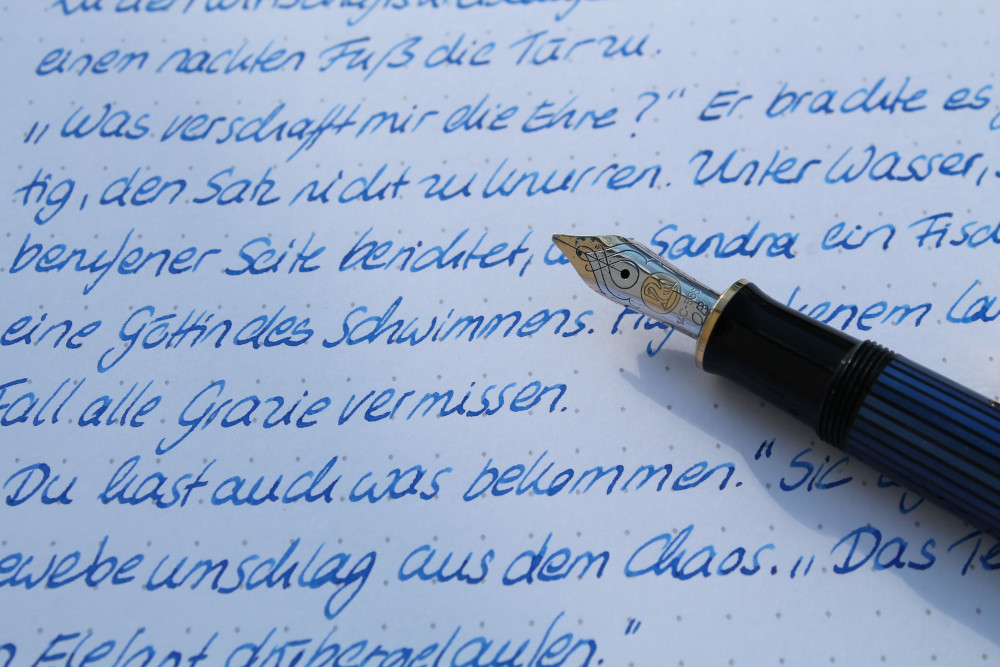 einem nackten Fuß die Tür zu.
„Was verschafft mir die Ehre?“ Er brachte es
tig, den Satz nicht zu knurren. Unter Wasser,
berufener Seite berichtet, Sandra ein Fisch
eine Göttin des Schwimmens.
Fall alle Grazie vermissen.
Du hast auch was bekommen.“ Sie
ewebeumschlag aus dem Chaos. „Das Te
n Elefant drübergelaufen.“